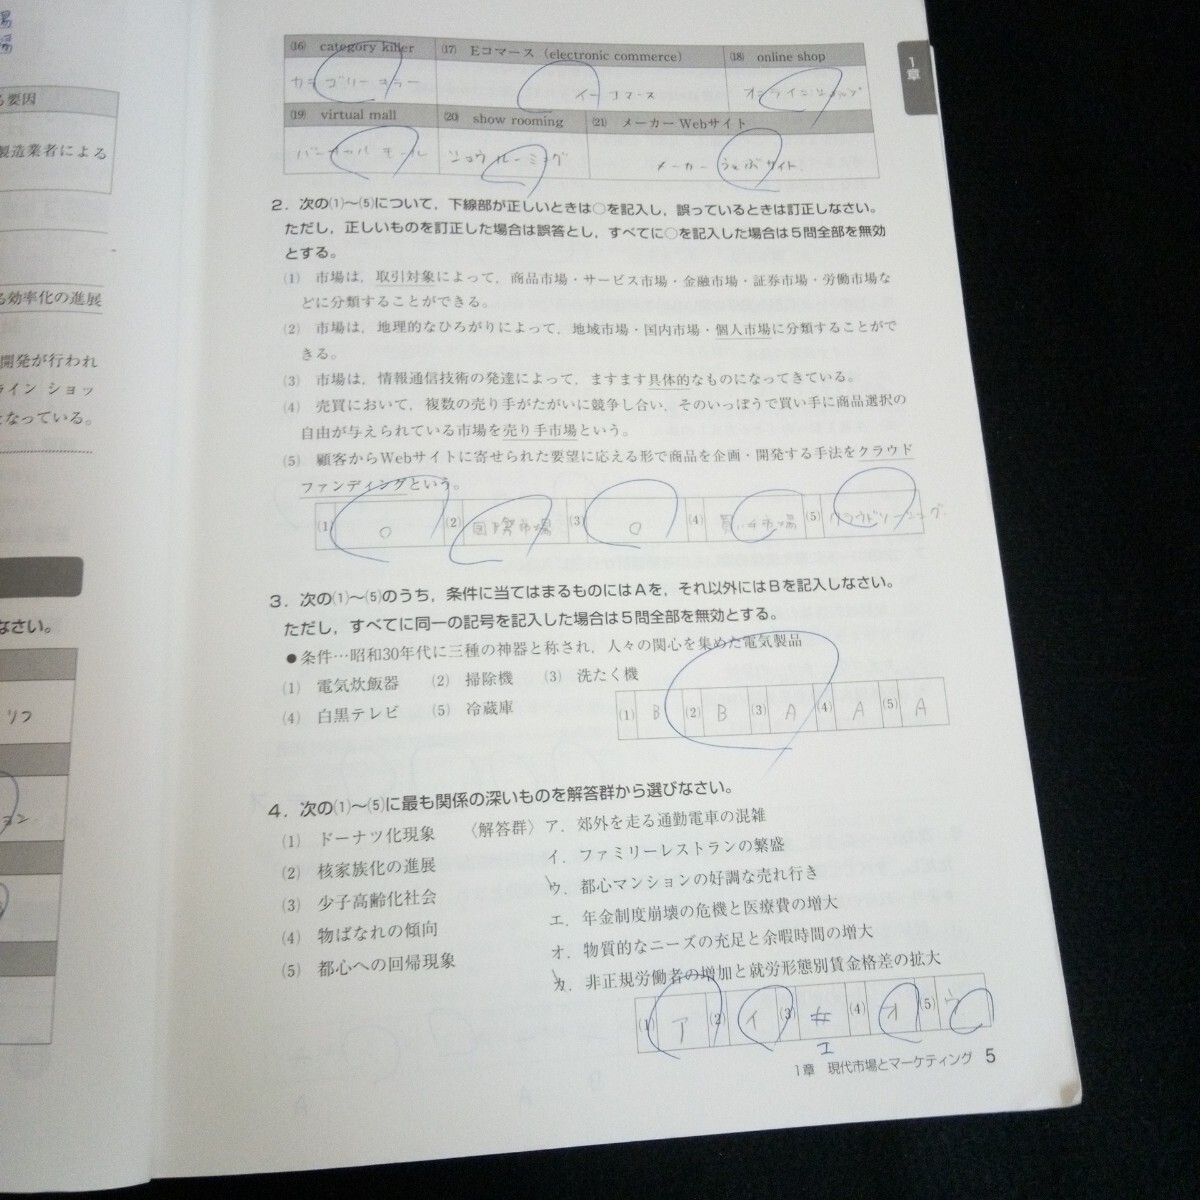 場
場
る要因
製造業者による
る効率化の進展
開発が行われ
ライン ショッ
となっている。
なさい。
リつ
ョン
1章
(16) category killer (17) Eコマース (electronic commerce) (18) online shop
カテゴリーキラー イーコマース オンラインショップ
(19) virtual mall (20) show rooming (21) メーカーWebサイト
バーチャルモール ショウルーミング メーカーウェブサイト
2．次の(1)～(5)について，下線部が正しいときは○を記入し，誤っているときは訂正しなさい。
ただし，正しいものを訂正した場合は誤答とし，すべてに○を記入した場合は5問全部を無効
とする。
(1) 市場は，取引対象によって，商品市場・サービス市場・金融市場・証券市場・労働市場な
どに分類することができる。
(2) 市場は，地理的なひろがりによって，地域市場・国内市場・個人市場に分類することがで
きる。
(3) 市場は，情報通信技術の発達によって，ますます具体的なものになってきている。
(4) 売買において，複数の売り手がたがいに競争し合い，そのいっぽうで買い手に商品選択の
自由が与えられている市場を売り手市場という。
(5) 顧客からWebサイトに寄せられた要望に応える形で商品を企画・開発する手法をクラウド
ファンディングという。
(1) ○ (2) 国際市場 (3) ○ (4) 買い手市場 (5) クラウドソーシング
3．次の(1)～(5)のうち，条件に当てはまるものにはAを，それ以外にはBを記入しなさい。
ただし，すべてに同一の記号を記入した場合は5問全部を無効とする。
●条件…昭和30年代に三種の神器と称され，人々の関心を集めた電気製品
(1) 電気炊飯器 (2) 掃除機 (3) 洗たく機
(4) 白黒テレビ (5) 冷蔵庫
(1) B (2) B (3) A (4) A (5) A
4．次の(1)～(5)に最も関係の深いものを解答群から選びなさい。
(1) ドーナツ化現象 〈解答群〉ア．郊外を走る通勤電車の混雑
(2) 核家族化の進展 イ．ファミリーレストランの繁盛
(3) 少子高齢化社会 ウ．都心マンションの好調な売れ行き
(4) 物ばなれの傾向 エ．年金制度崩壊の危機と医療費の増大
(5) 都心への回帰現象 オ．物質的なニーズの充足と余暇時間の増大
カ．非正規労働者の増加と就労形態別賃金格差の拡大
(1) ア (2) イ (3) (4) オ (5) ウ
エ
1章 現代市場とマーケティング 5